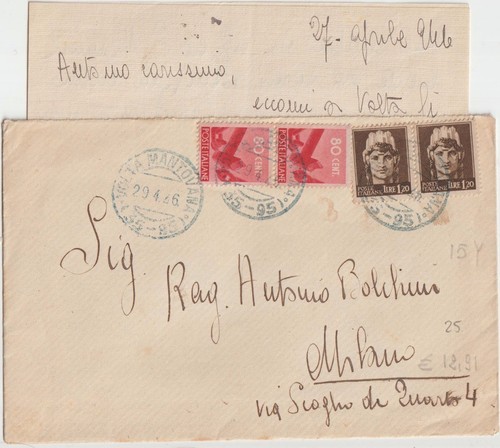 27 - aprile 946
Antonio carissimo,
eccomi a Volta. Li
POSTE ITALIANE 80 CENT.
POSTE ITALIANE 80 CENT.
POSTE ITALIANE LIRE 1,20
POSTE ITALIANE LIRE 1,20
VOLTA MANTOVANA
29.4.46
(35-95)
15
25
€ 12,91
Sig.
Rag. Antonio Boldrini
Milano
via Scoglio di Quarto 4